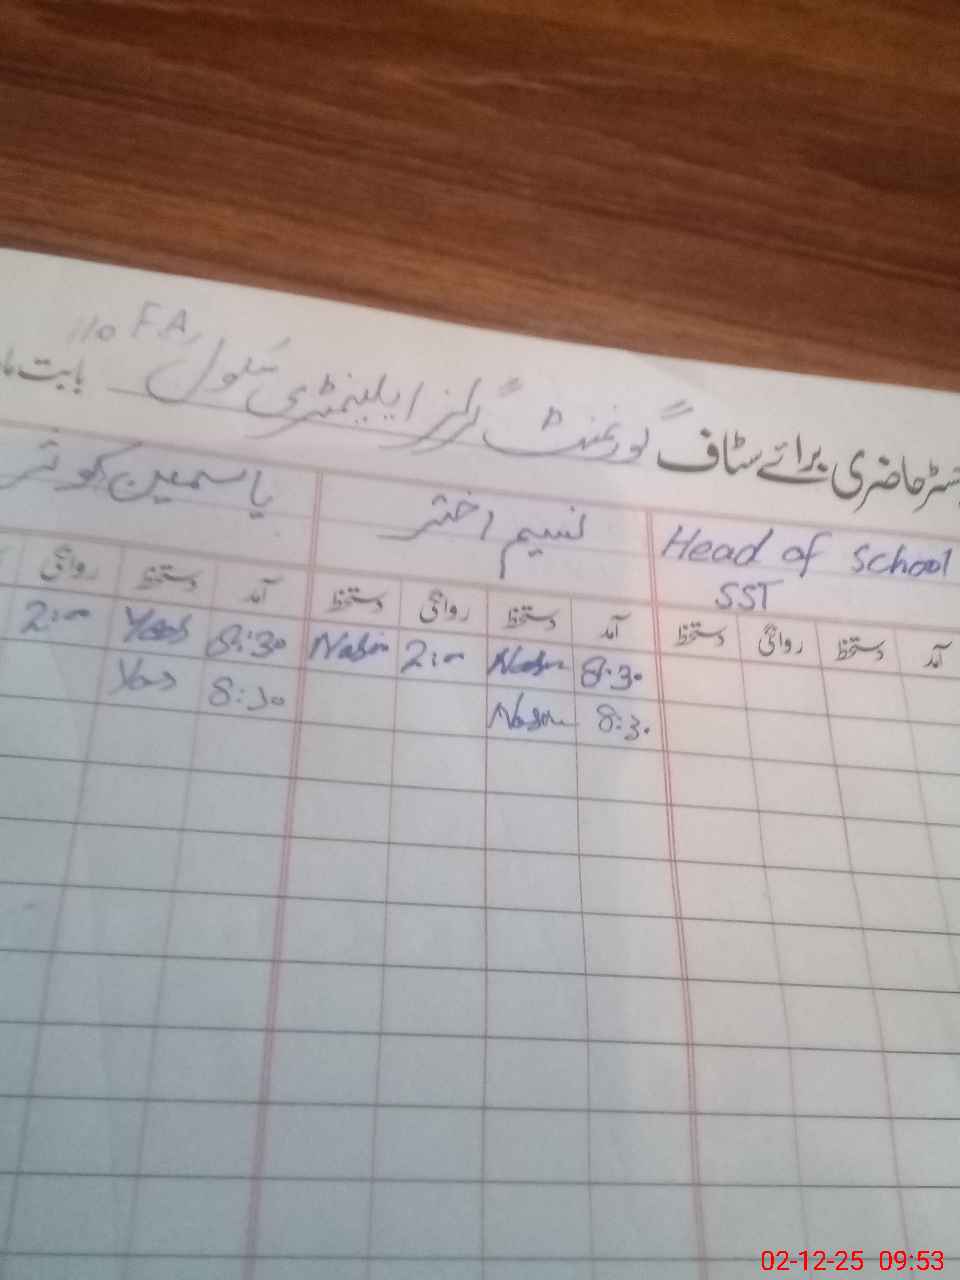 رجسٹر حاضری برائے سٹاف گورنمنٹ گرلز ایلیمنٹری سکول 110 F.A, بابت ما
Head of School SST نسیم اختر یاسمین کوثر
آمد دستخط روانگی دستخط آمد دستخط روانگی دستخط آمد دستخط روانگی
8:30 Nasim 2:00 Nasim 8:30 Yas 2:00
8:30 Nasim 8:30 Yas
02-12-25 09:53